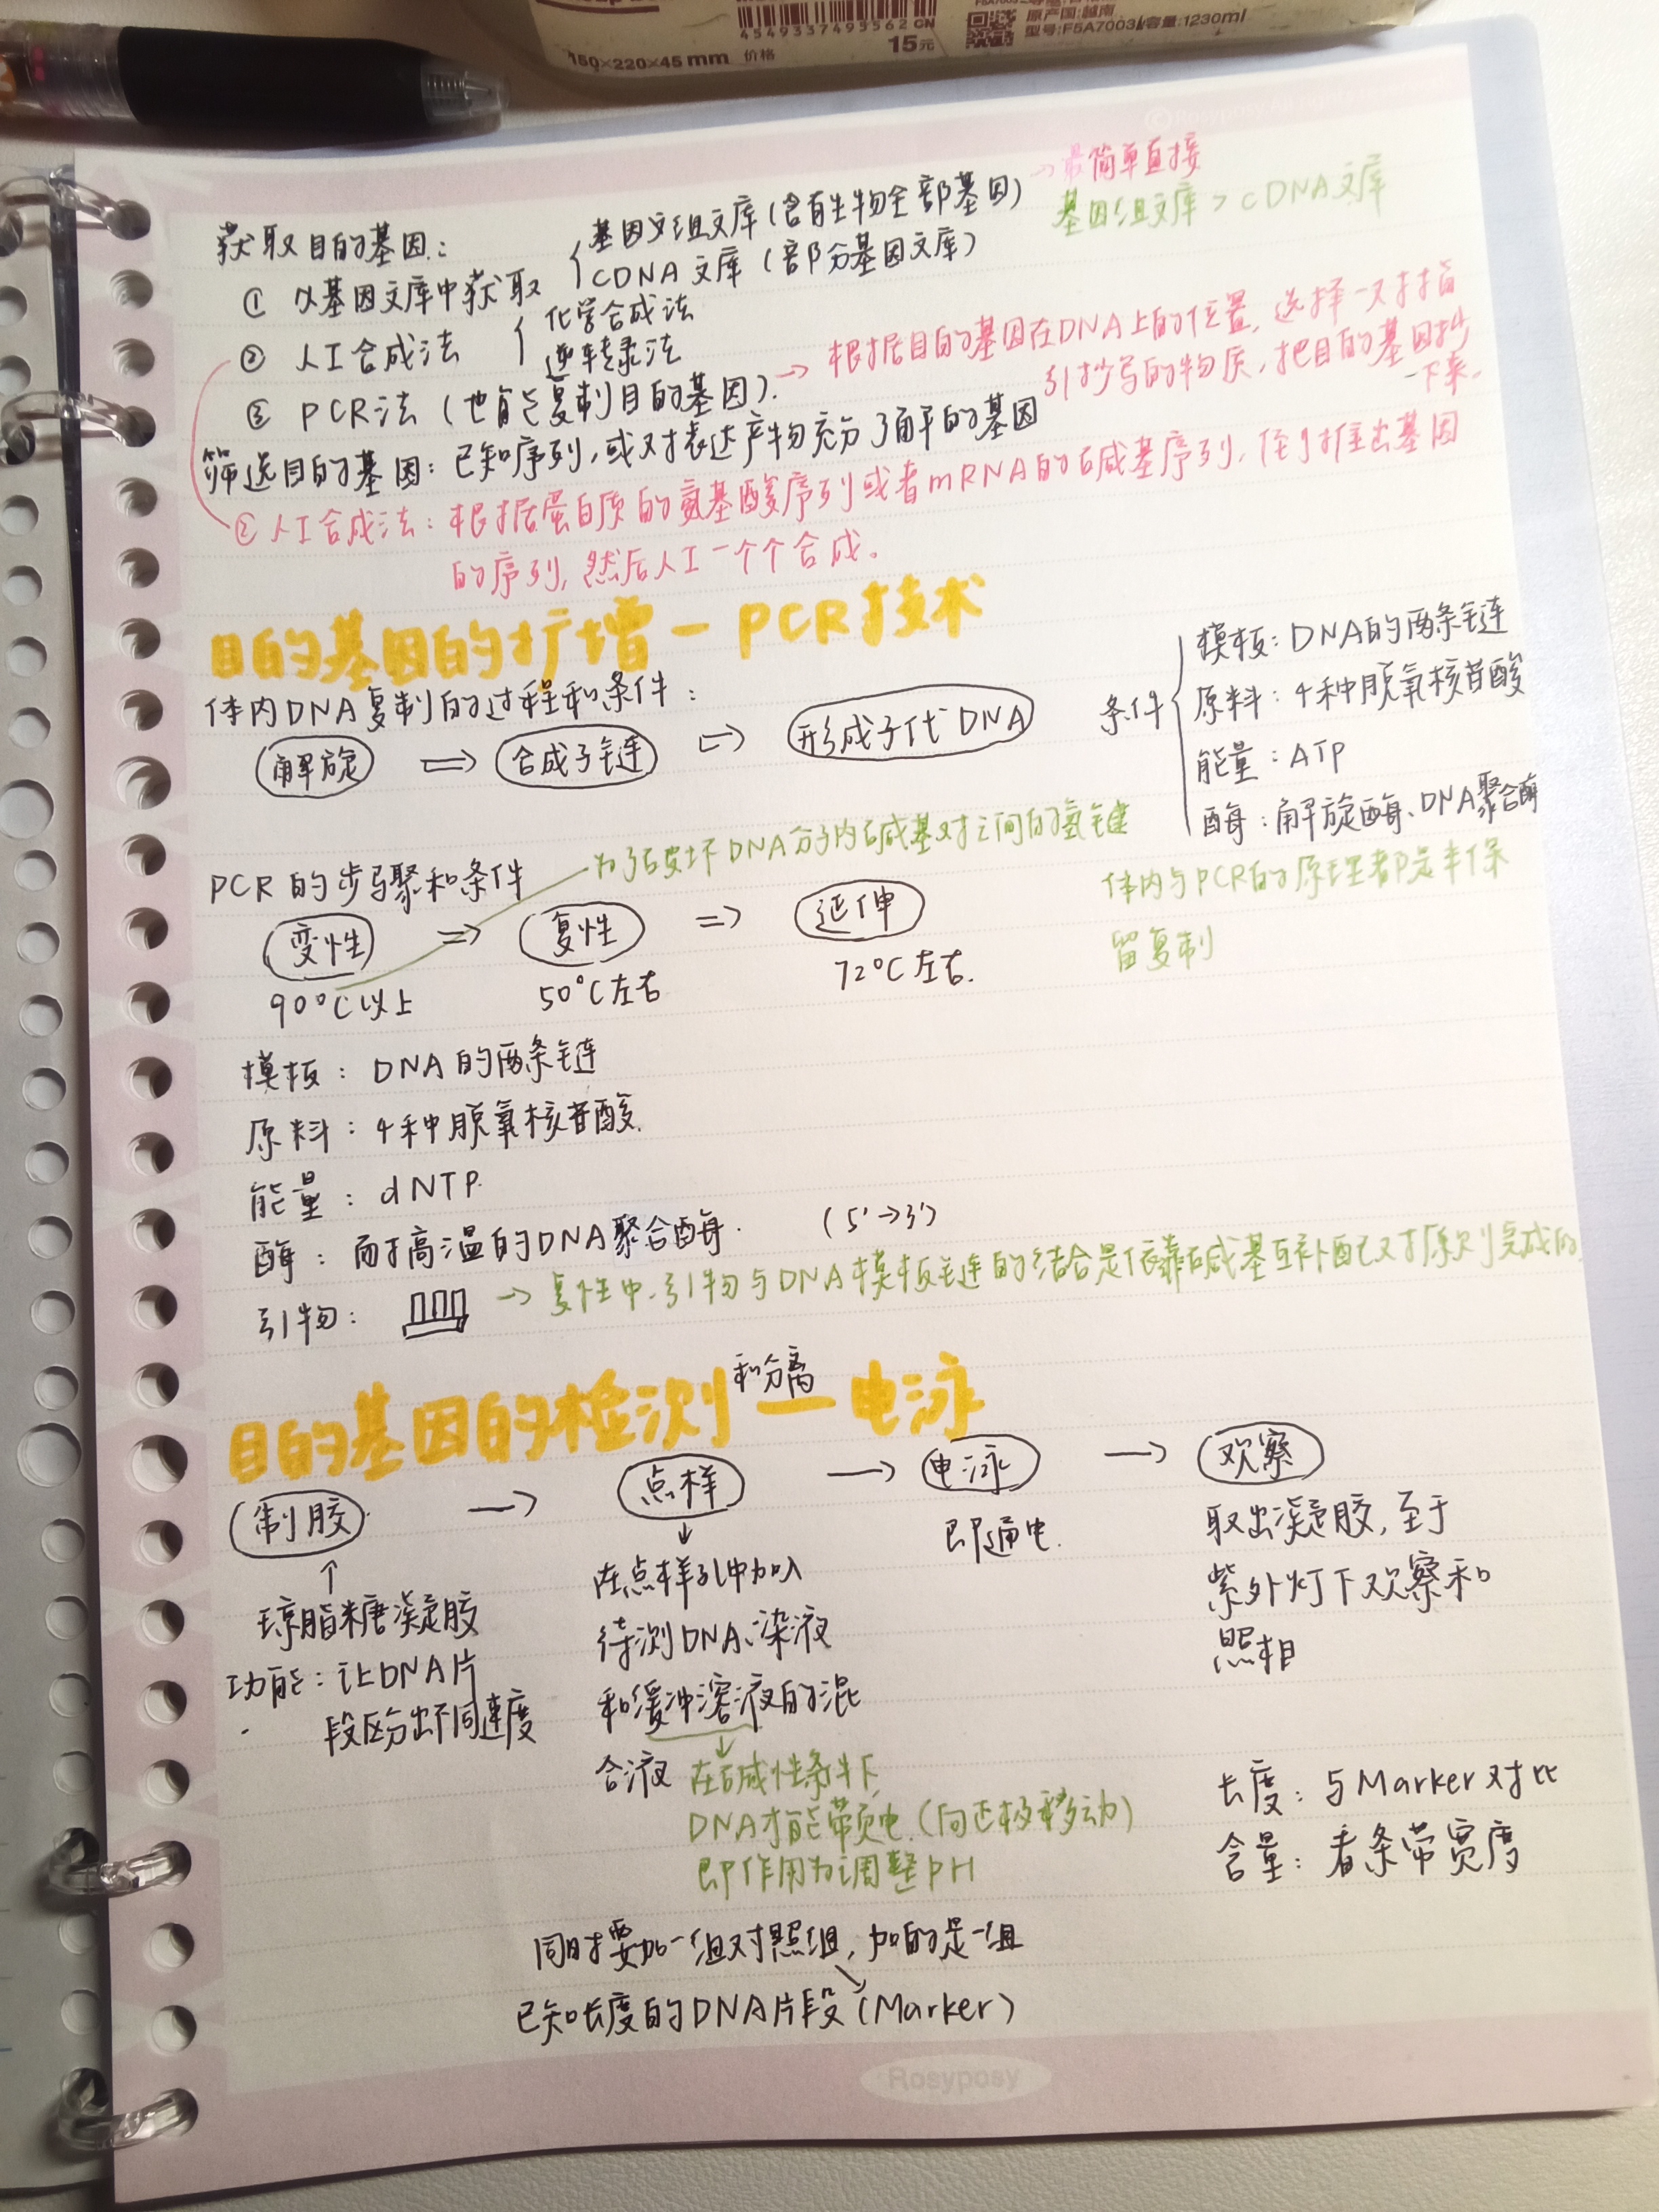 4549337495562 CN
150×220×45 mm 价格 15元
原产国:越南
型号:F5A7003/容量:1230ml
获取目的基因:
① 从基因文库中获取
基因组文库(含有生物全部基因)
→最简单直接
CDNA 文库 (部分基因文库)
基因组文库 > cDNA文库
② 人工合成法
化学合成法
逆转录法
③ PCR法 (也能复制目的基因).
→ 根据目的基因在DNA上的位置,选择一对指
引抄写的物质,把目的基因抄
下来.
筛选目的基因:已知序列,或对表达产物充分了解的基因
②人工合成法:根据蛋白质的氨基酸序列或者mRNA的碱基序列,倒推出基因
的序列,然后人工一个个合成。
目的基因的扩增-PCR技术
体内DNA复制的过程和条件:
解旋 => 合成子链 => 形成子代DNA
条件
模板:DNA的两条链
原料:4种脱氧核苷酸
能量:ATP
酶:解旋酶、DNA聚合酶
PCR的步骤和条件
为了破坏DNA分子内碱基对之间的氢键
体内与PCR的原理都是半保
留复制
变性 => 复性 => 延伸
90°C以上 50°C左右 72°C左右.
模板:DNA的两条链
原料:4种脱氧核苷酸.
能量:dNTP.
酶:耐高温的DNA聚合酶. (5'→3')
引物: → 复性中,引物与DNA模板链的结合是依靠碱基互补配对原则完成的
目的基因的检测和分离—电泳
制胶 → 点样 → 电泳 → 观察
琼脂糖凝胶
功能:让DNA片
段区分出不同速度
在点样孔中加入
待测DNA、染液
和缓冲溶液的混
合液
在碱性条件下
DNA才能带负电.(向正极移动)
即作用为调整PH
即通电.
取出凝胶,至于
紫外灯下观察和
照相
长度:与Marker对比
含量:看条带宽度
同时要加一组对照组,加的是一组
已知长度的DNA片段(Marker)
Rosyposy